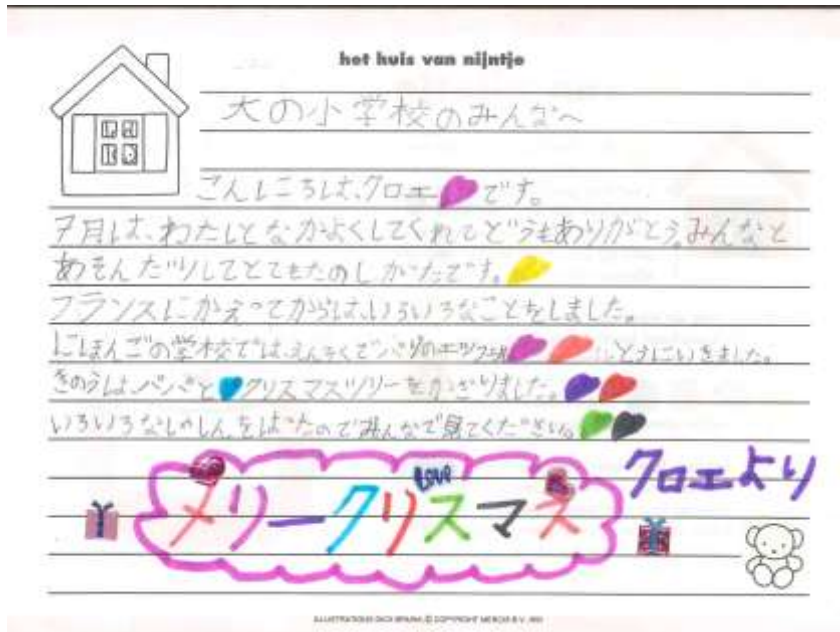 het huis van nijntje
大の小学校のみんなへ
こんにちは、クロエです。
7月は、わたしとなかよくしてくれてどうもありがとう。みんなと
あそんだりしてとてもたのしかったです。
フランスにかえってからは、いろいろなことをしました。
にほんごの学校では、えんそくでパリのエッフェル にいきました。
きのうは、パパとクリスマスツリーをかざりました。
いろいろなしゃしんをはったのでみんなで見てください。
LOVE
メリークリスマス
クロエより
ILLUSTRATIONS DICK BRUNA © COPYRIGHT MERCIS B.V.